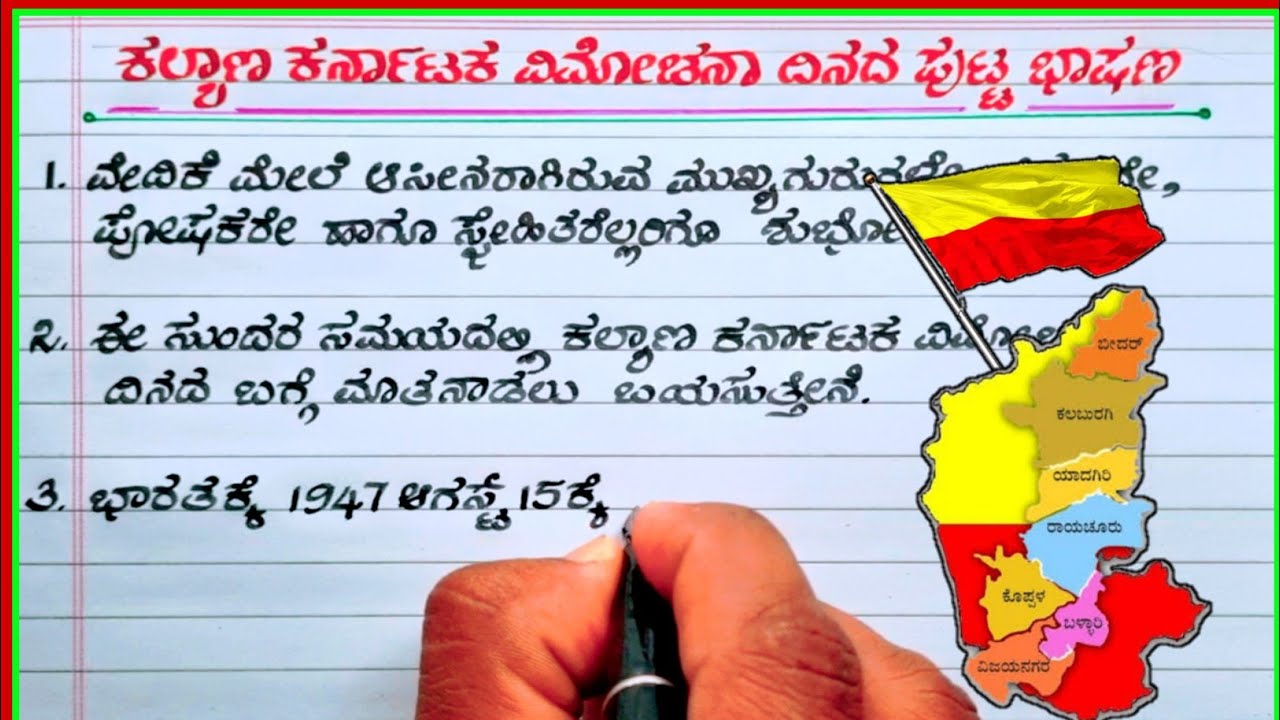 ಕಲ್ಯಾಣ ಕರ್ನಾಟಕ ವಿಮೋಚನಾ ದಿನದ ಪುಟ್ಟ ಭಾಷಣ
1. ವೇದಿಕೆ ಮೇಲೆ ಆಸೀನರಾಗಿರುವ
ಪೋಷಕರೇ ಹಾಗೂ ಸ್ನೇಹಿತರೆಲ್ಲರಿಗೂ
2. ಈ ಸುಂದರ ಸಮಯದಲ್ಲಿ ಕಲ್ಯಾಣ ಕರ್ನಾಟಕ
ದಿನದ ಬಗ್ಗೆ ಮಾತನಾಡಲು ಬಯಸುತ್ತೇನೆ.
3. ಭಾರತಕ್ಕೆ 1947 ಆಗಸ್ಟ್ 15ಕ್ಕೆ
ಬೀದರ್
ಕಲಬುರಗಿ
ಯಾದಗಿರಿ
ರಾಯಚೂರು
ಕೊಪ್ಪಳ
ಬಳ್ಳಾರಿ
ವಿಜಯನಗರ